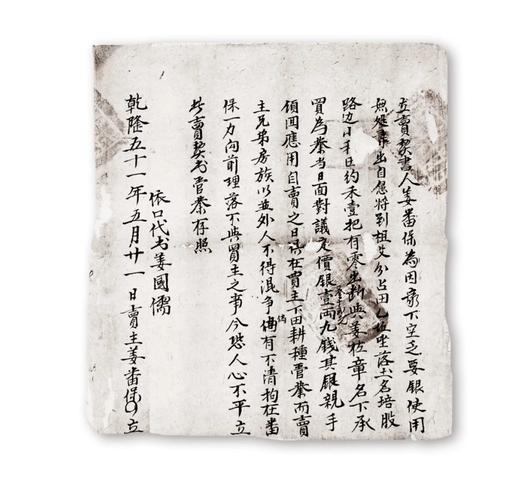 立賣契書人姜番保為因家下空乏要銀使用
無処出自愿将到祖父分占田一坵坐落土名培股
路边小□□約禾壹把有零出断與姜松章名下承
買為業当日面對議定價銀壹両九錢其銀親手
領回應用自賣之日□在買主下田耕種管業而賣
主兄弟房族以並外人不得混争倘有不清拘在番
保一力向前理落不與買主之事今恐人心不平立
此賣契書管業存照
依口代书姜國儒
乾隆五十一年五月廿一日賣主姜番保立